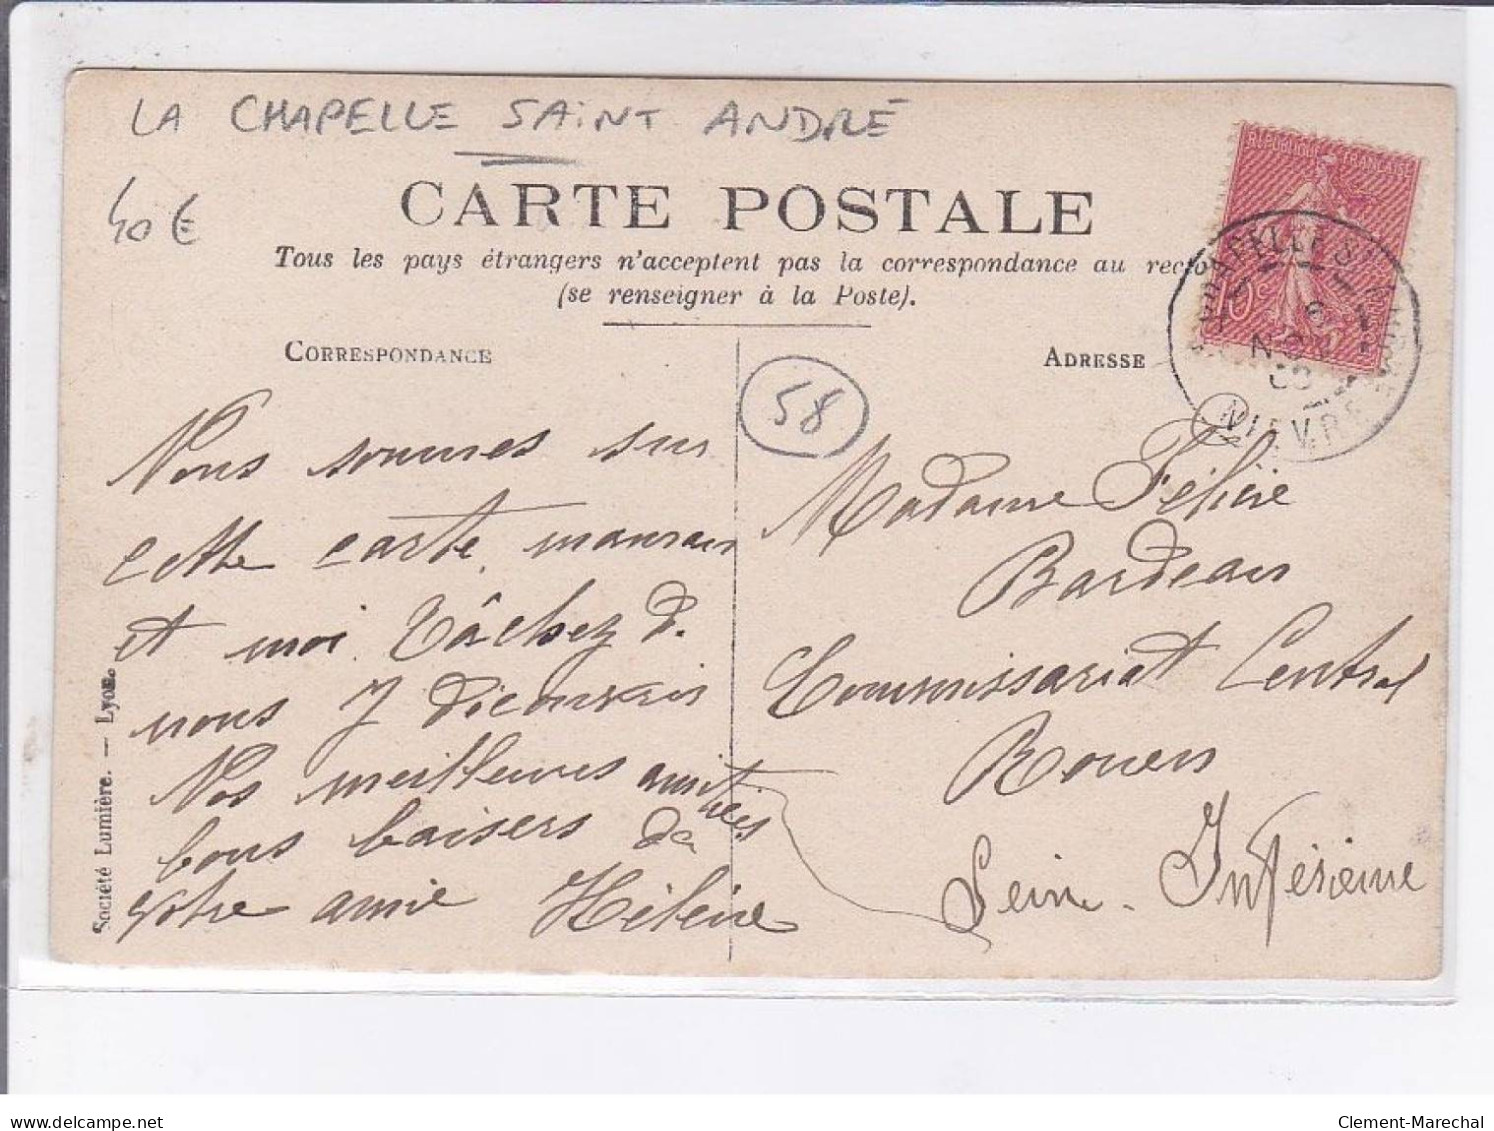 LA CHAPELLE SAINT ANDRÉ
40€
CARTE POSTALE
Tous les pays étrangers n'acceptent pas la correspondance au recto
(se renseigner à la Poste).
CORRESPONDANCE
ADRESSE
58
RÉPUBLIQUE FRANÇAISE
10c
CHAPELLE ST ANDRÉ
NOV
NIEVRE
Nous sommes sur
cette carte, maman
et moi. Tâchez d.
nous
Nos meilleures amitiés
bons baisers de
votre amie Hélène
Madame Félicie
Bardeau
Commissariat Central
Rouen
Seine-Inférieure
Société Lumière. — Lyon.
delcampe.net
Clement-Marechal